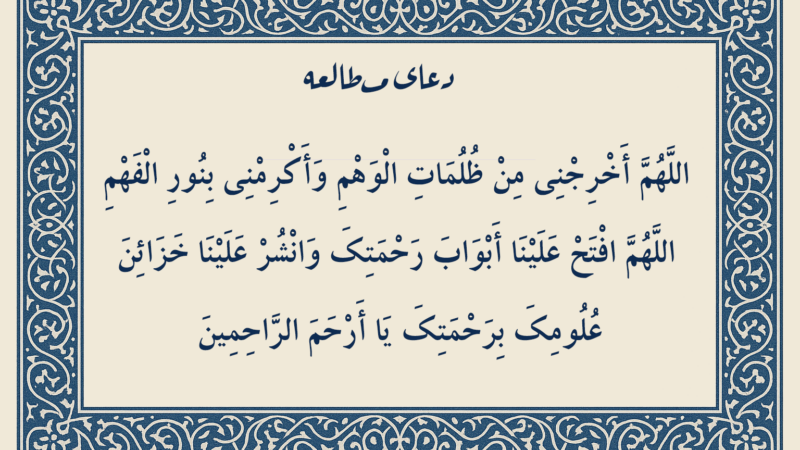 دعای مطالعه
اللَّهُمَّ أَخْرِجْنِی مِنْ ظُلُمَاتِ الْوَهْمِ وَأَکْرِمْنِی بِنُورِ الْفَهْمِ
اللَّهُمَّ افْتَحْ عَلَیْنَا أَبْوَابَ رَحْمَتِکَ وَانْشُرْ عَلَیْنَا خَزَائِنَ
عُلُومِکَ بِرَحْمَتِکَ یَا أَرْحَمَ الرَّاحِمِینَ